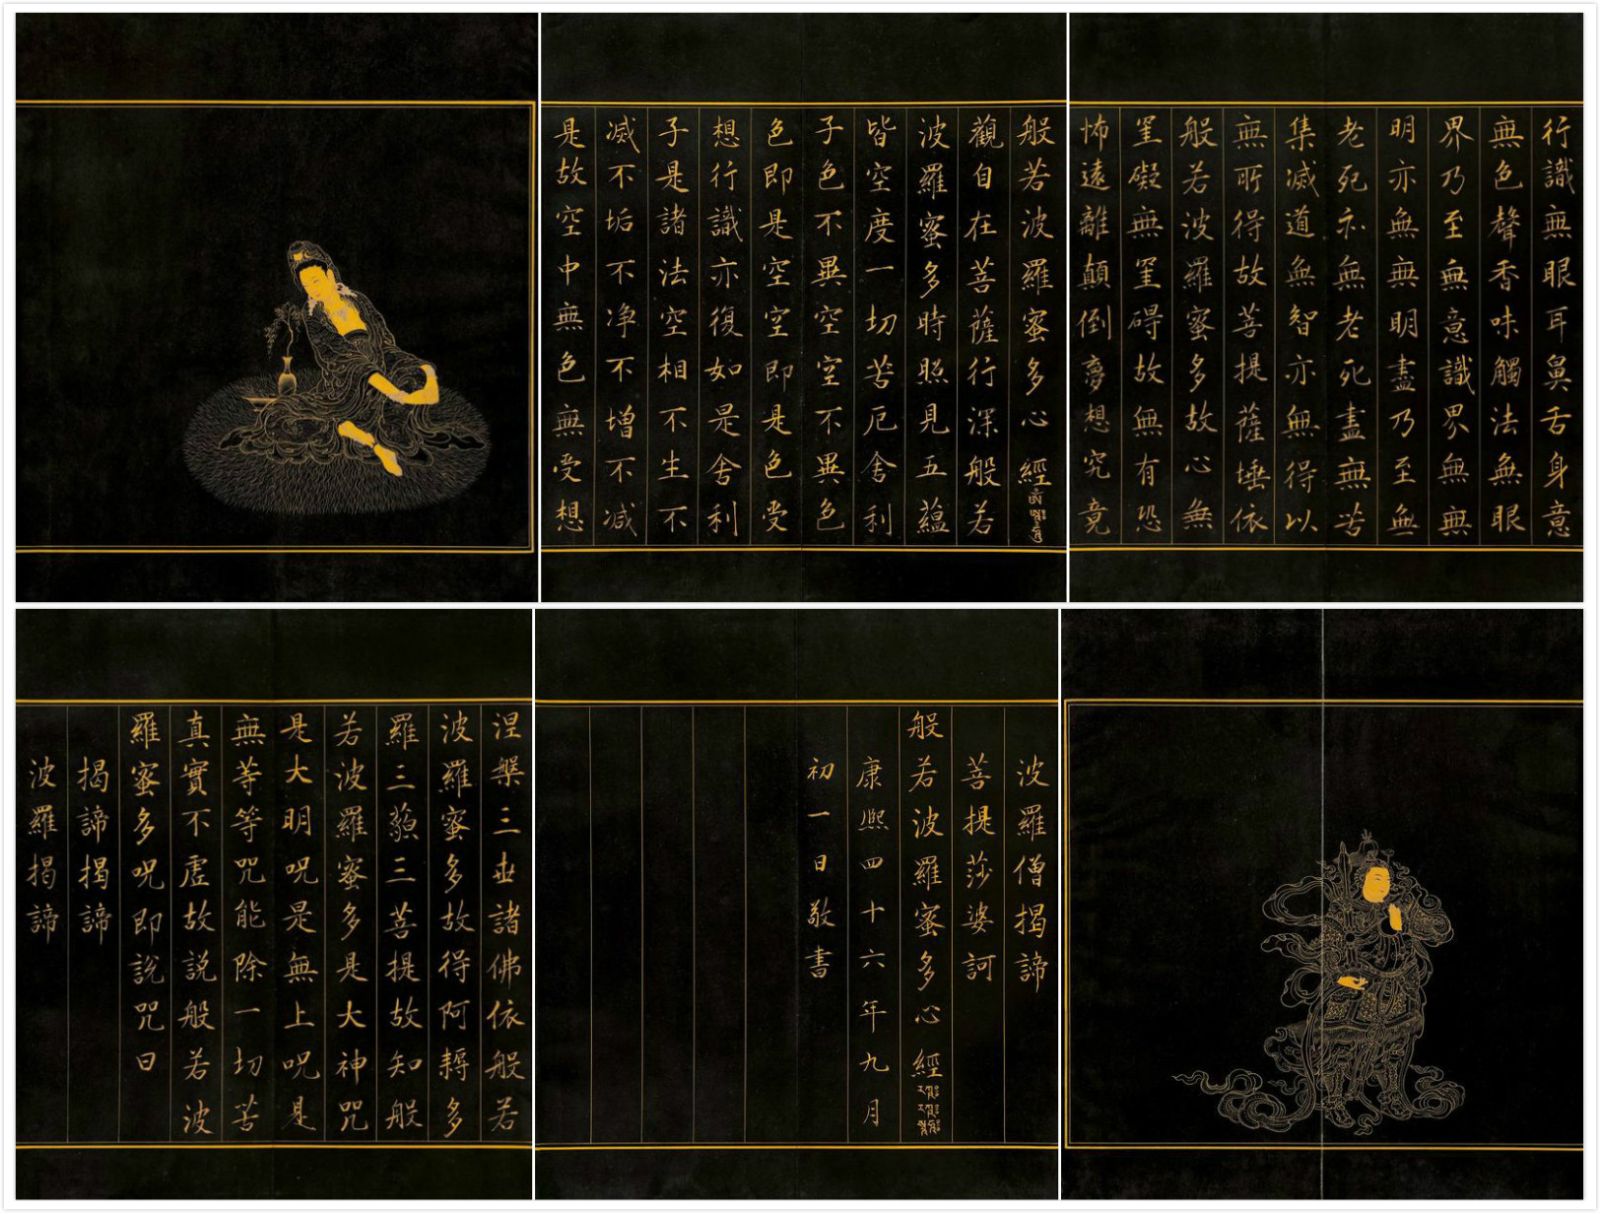 般若波羅蜜多心經
觀自在菩薩行深般若
波羅蜜多時照見五蘊
皆空度一切苦厄舍利
子色不異空空不異色
色即是空空即是色受
想行識亦復如是舍利
子是諸法空相不生不
滅不垢不净不增不減
是故空中無色無受想
行識無眼耳鼻舌身意
無色聲香味觸法無眼
界乃至無意識界無無
明亦無無明盡乃至無
老死亦無老死盡無苦
集滅道無智亦無得以
無所得故菩提薩埵依
般若波羅蜜多故心無
罣礙無罣碍故無有恐
怖遠離顛倒夢想究竟
涅槃三世諸佛依般若
波羅蜜多故得阿耨多
羅三藐三菩提故知般
若波羅蜜多是大神咒
是大明咒是無上咒是
無等等咒能除一切苦
真實不虛故說般若波
羅蜜多咒即說咒曰
揭諦揭諦
波羅揭諦
波羅僧揭諦
菩提莎婆訶
般若波羅蜜多心經
康熙四十六年九月
初一日敬書